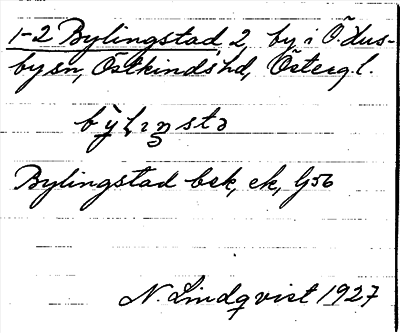 1-2 Bylingstad, 2, by i Ö. Hus-
by sn, Östkinds hd, Östergl.
Bylingstad bek, ek, G56
N. Lindqvist 1927